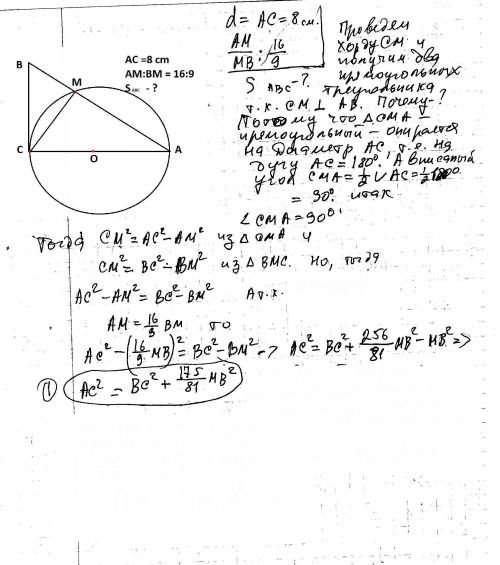 d = AC = 8 см.
AM/MB : 16/9
S ABC - ?
Проведем
хорду CM и
получим два
прямоугольных
треугольника
т.к. CM ⊥ AB. Почему?
Потому что △CMA –
прямоугольный – опирается
на диаметр AC, т.е. на
дугу AC = 180°. А вписаный
угол CMA = 1/2 ∪ AC = 1/2 180°
= 90° итак
∠CMA = 90°
B
M
C
O
A
AC =8 cm
AM:BM = 16:9
S ABC - ?
Тогда CM² = AC² - AM² из △CMA и
CM² = BC² - BM² из △BMC. Но, тогда
AC² - AM² = BC² - BM² А т.к.
AM = 16/9 BM то
AC² - (16/9 MB)² = BC² - BM² => AC² = BC² + 256/81 MB² - MB² =>
(1) AC² = BC² + 175/81 MB²